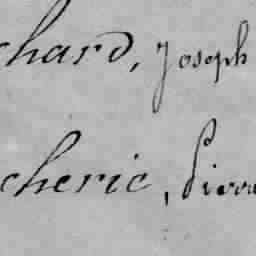 chard, Joseph
cheric, Pierre